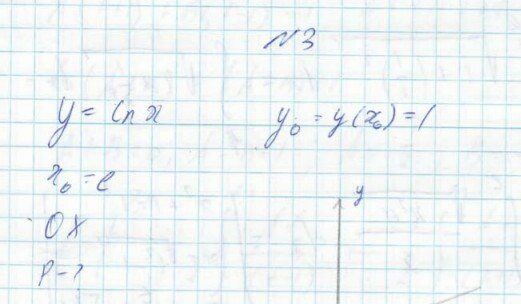 №3
y = ln x    y₀ = y(x₀) = 1
x₀ = e
OX
y
P - ?